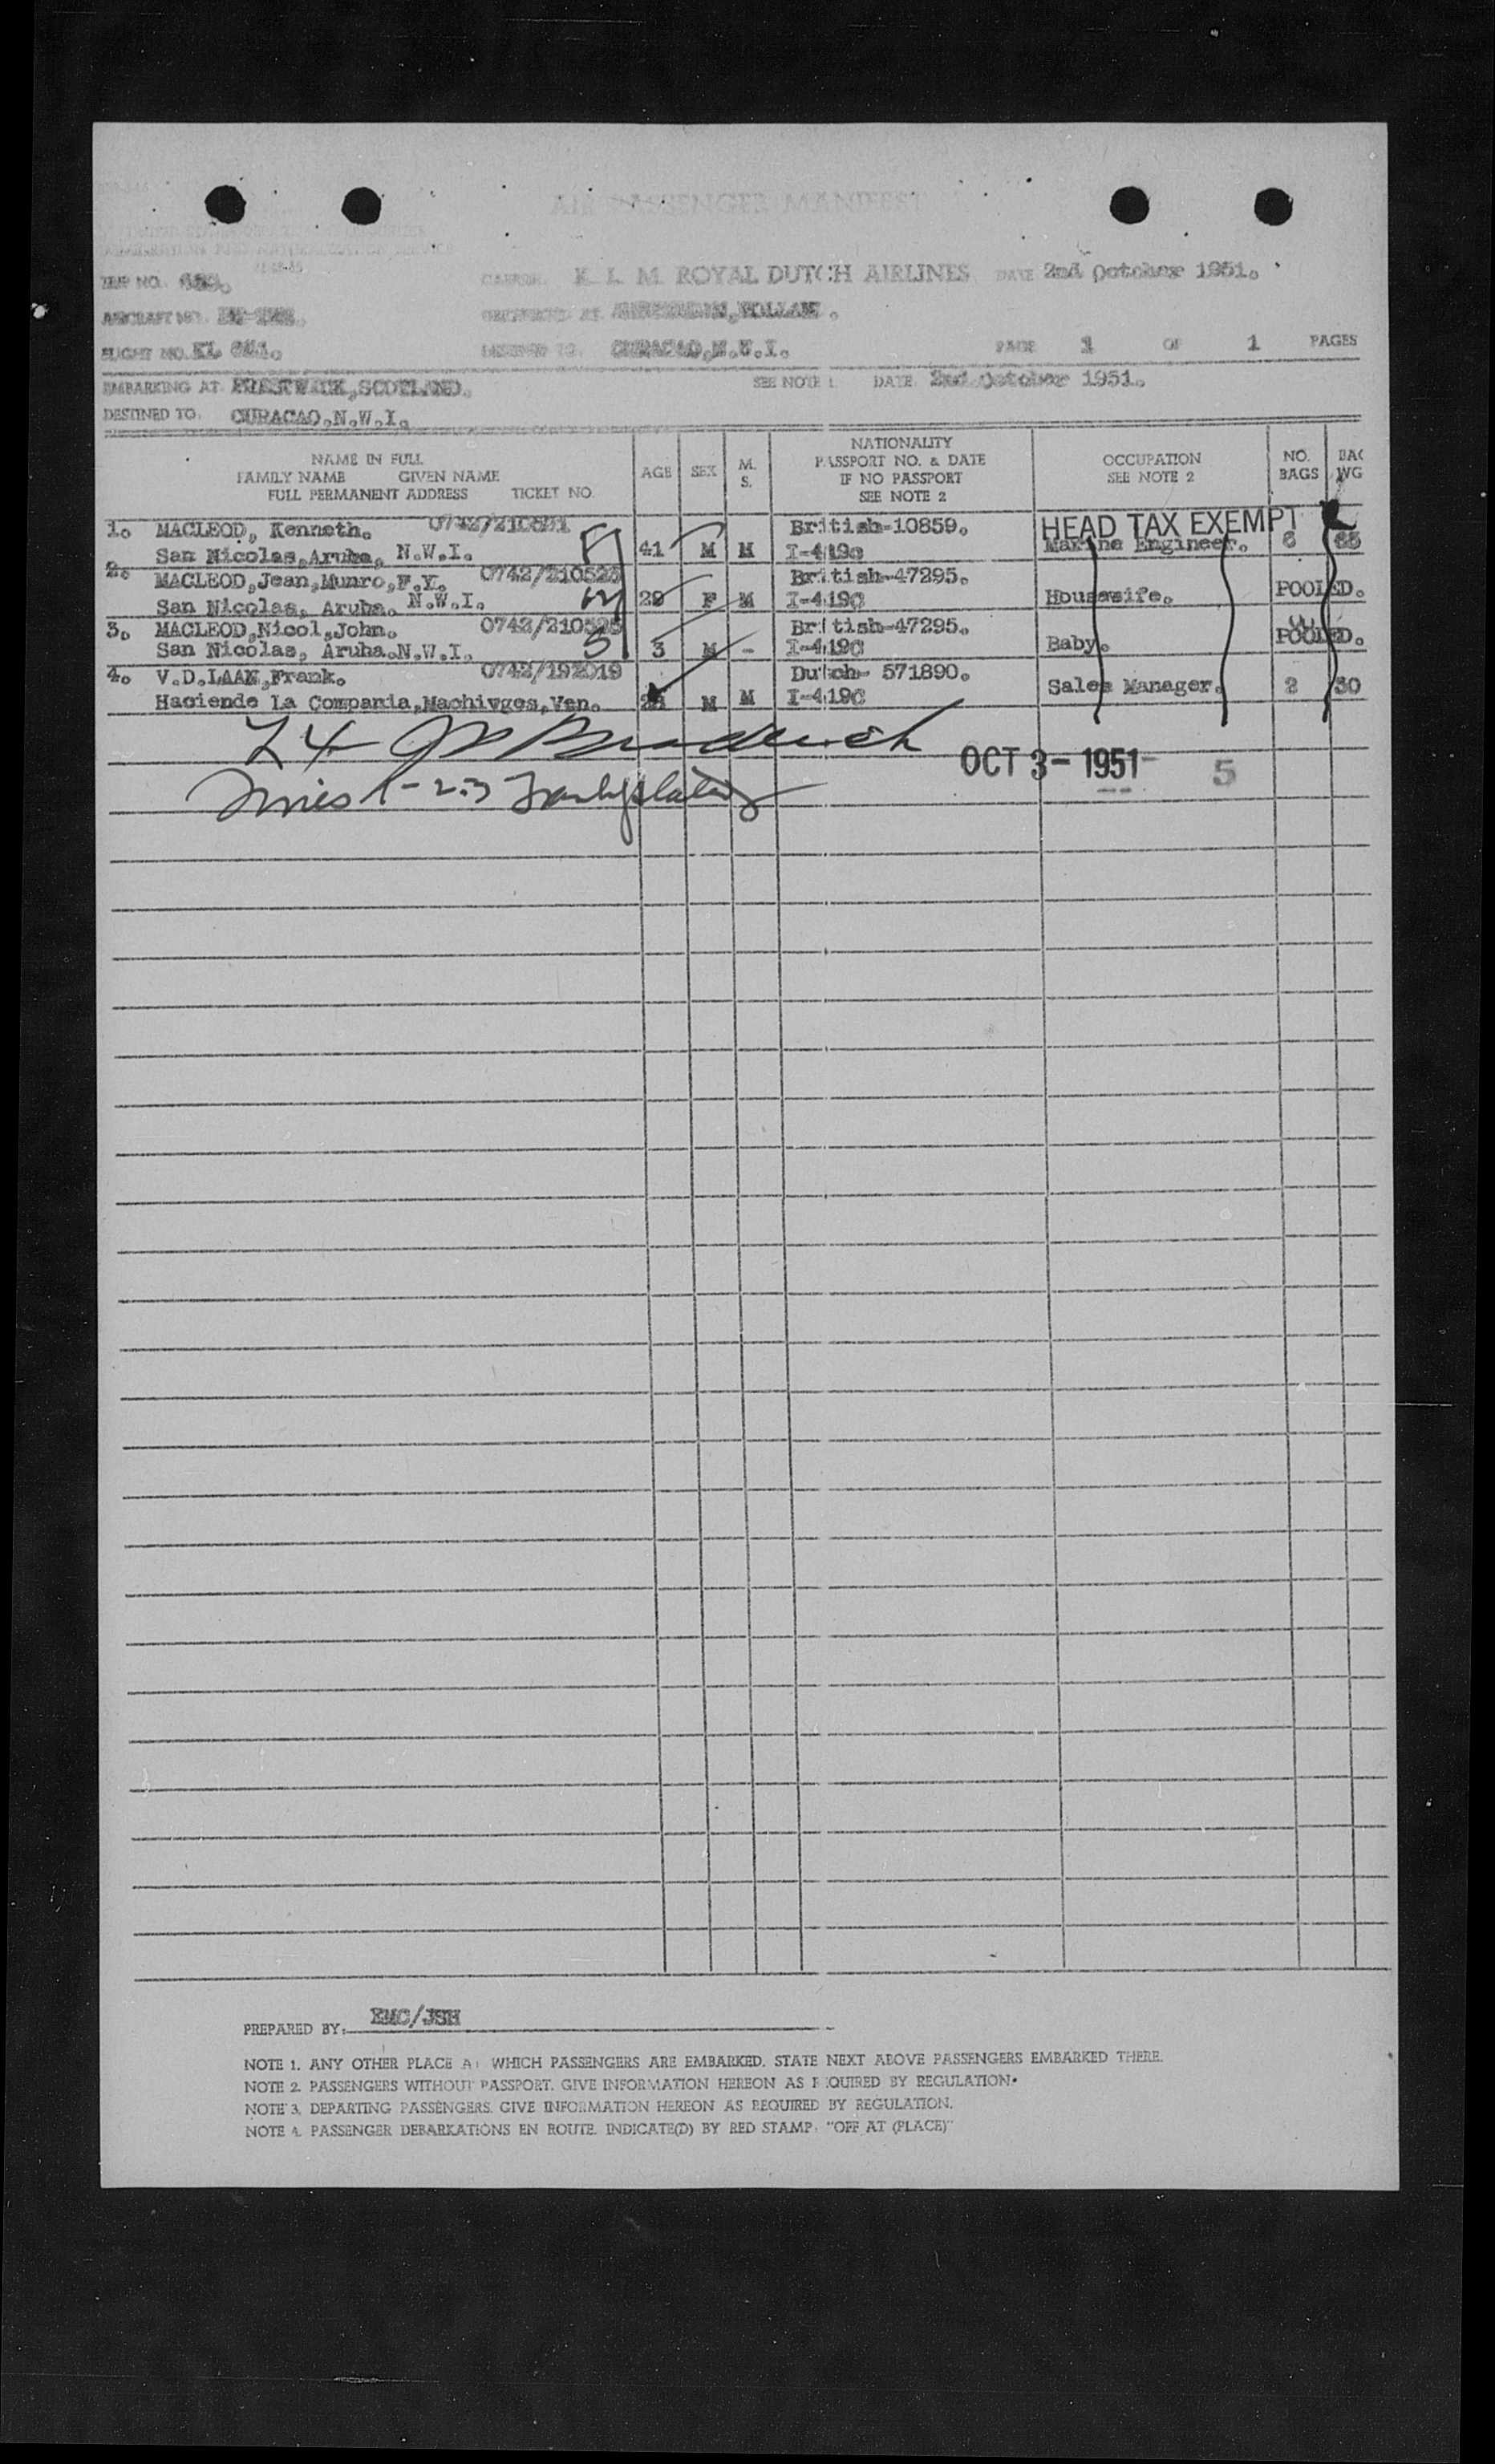 AIR PASSENGER MANIFEST
IMMIGRATION AND NATURALIZATION SERVICE
TRIP NO.
CARRIER K. L. M. ROYAL DUTCH AIRLINES DATE 2nd October 1951.
AIRCRAFT NO.
ORIGINATED AT AMSTERDAM, HOLLAND.
FLIGHT NO. KL
DESTINED TO. CURACAO, N.W.I. PAGE 1 OF 1 PAGES
EMBARKING AT PRESTWICK, SCOTLAND. SEE NOTE 1. DATE 2nd October 1951.
DESTINED TO. CURACAO, N.W.I.
NAME IN FULL
FAMILY NAME GIVEN NAME
FULL PERMANENT ADDRESS TICKET NO.
AGE SEX M. S.
NATIONALITY
PASSPORT NO. & DATE
IF NO PASSPORT
SEE NOTE 2
OCCUPATION
SEE NOTE 2
NO. BAGS
BAG WG
1. MACLEOD, Kenneth. British-10859. HEAD TAX EXEMPT
San Nicolas, Aruba, N.W.I. 41 M M I-419C Marine Engineer. 6
2. MACLEOD, Jean, Munro, F.Y. British-47295.
San Nicolas, Aruba. N.W.I. 29 F M I-419C Housewife. POOLED.
3. MACLEOD, Nicol, John. British-47295.
San Nicolas, Aruba. N.W.I. 3 M - I-419C Baby. POOLED.
4. V.D.LAAN, Frank. 0742/192019 Dutch- 571890.
Haciende La Compania, Machivges, Ven. M M I-419C Sales Manager. 2 30
OCT 3- 1951 5
PREPARED BY: EMC/JSH
NOTE 1. ANY OTHER PLACE AT WHICH PASSENGERS ARE EMBARKED. STATE NEXT ABOVE PASSENGERS EMBARKED THERE.
NOTE 2. PASSENGERS WITHOUT PASSPORT. GIVE INFORMATION HEREON AS REQUIRED BY REGULATION.
NOTE 3. DEPARTING PASSENGERS. GIVE INFORMATION HEREON AS REQUIRED BY REGULATION.
NOTE 4. PASSENGER DEBARKATIONS EN ROUTE. INDICATE(D) BY RED STAMP. "OFF AT (PLACE)"